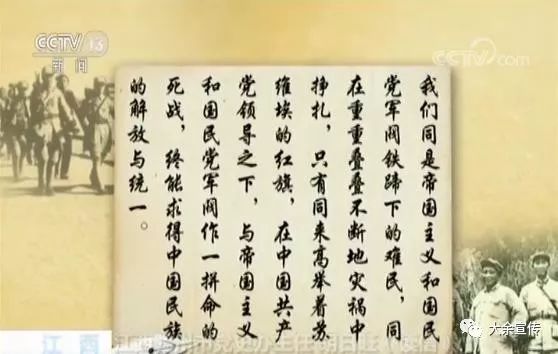 CCTV 13
新闻
CCTV.com
我们同是帝国主义和国民
党军阀铁蹄下的难民，同
在重重叠叠不断地灾祸中
挣扎，只有同来高举着苏
维埃的红旗，在中国共产
党领导之下，与帝国主义
和国民党军阀作一拼命的
死战，终能求得中国民族
的解放与统一。
江西
大余宣传